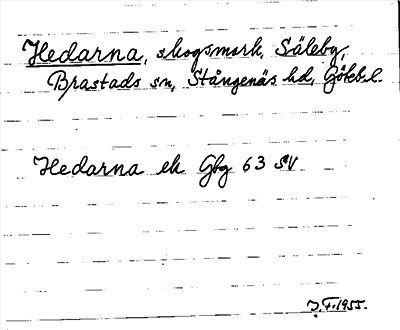 Hedarna, skogsmark, Säleby,
Brastads sn, Stångenäs hd, Götebl.
Hedarna ek Gbg 63 SV
J.F. 1955.